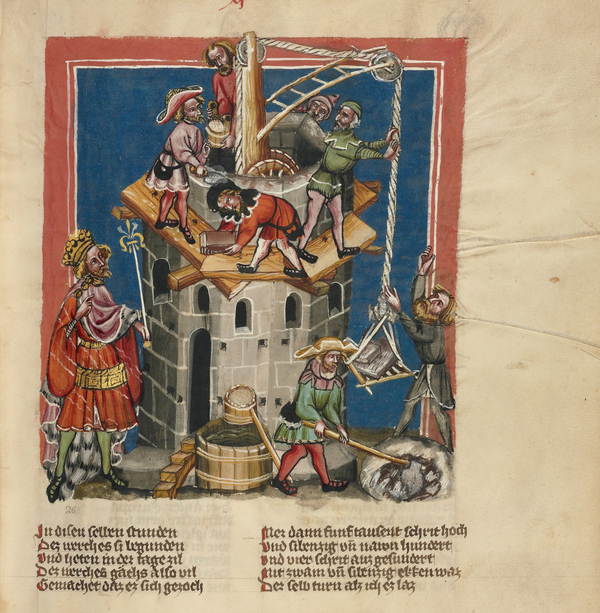 26
In disen selben stunden
Dez werches si begunden
Vnd heten in der tage zil
Dez werches gachs also vil
Gemachet daz ez sich gezoch
Mer dann funf tausent schrit hoch
Vnd sibenzig vn̄ nawn hundert
Vnd vier schrit auz gesundert
Mit zwain vn̄ sibenzig ekken waz
Der selb turn alz ich ez laz